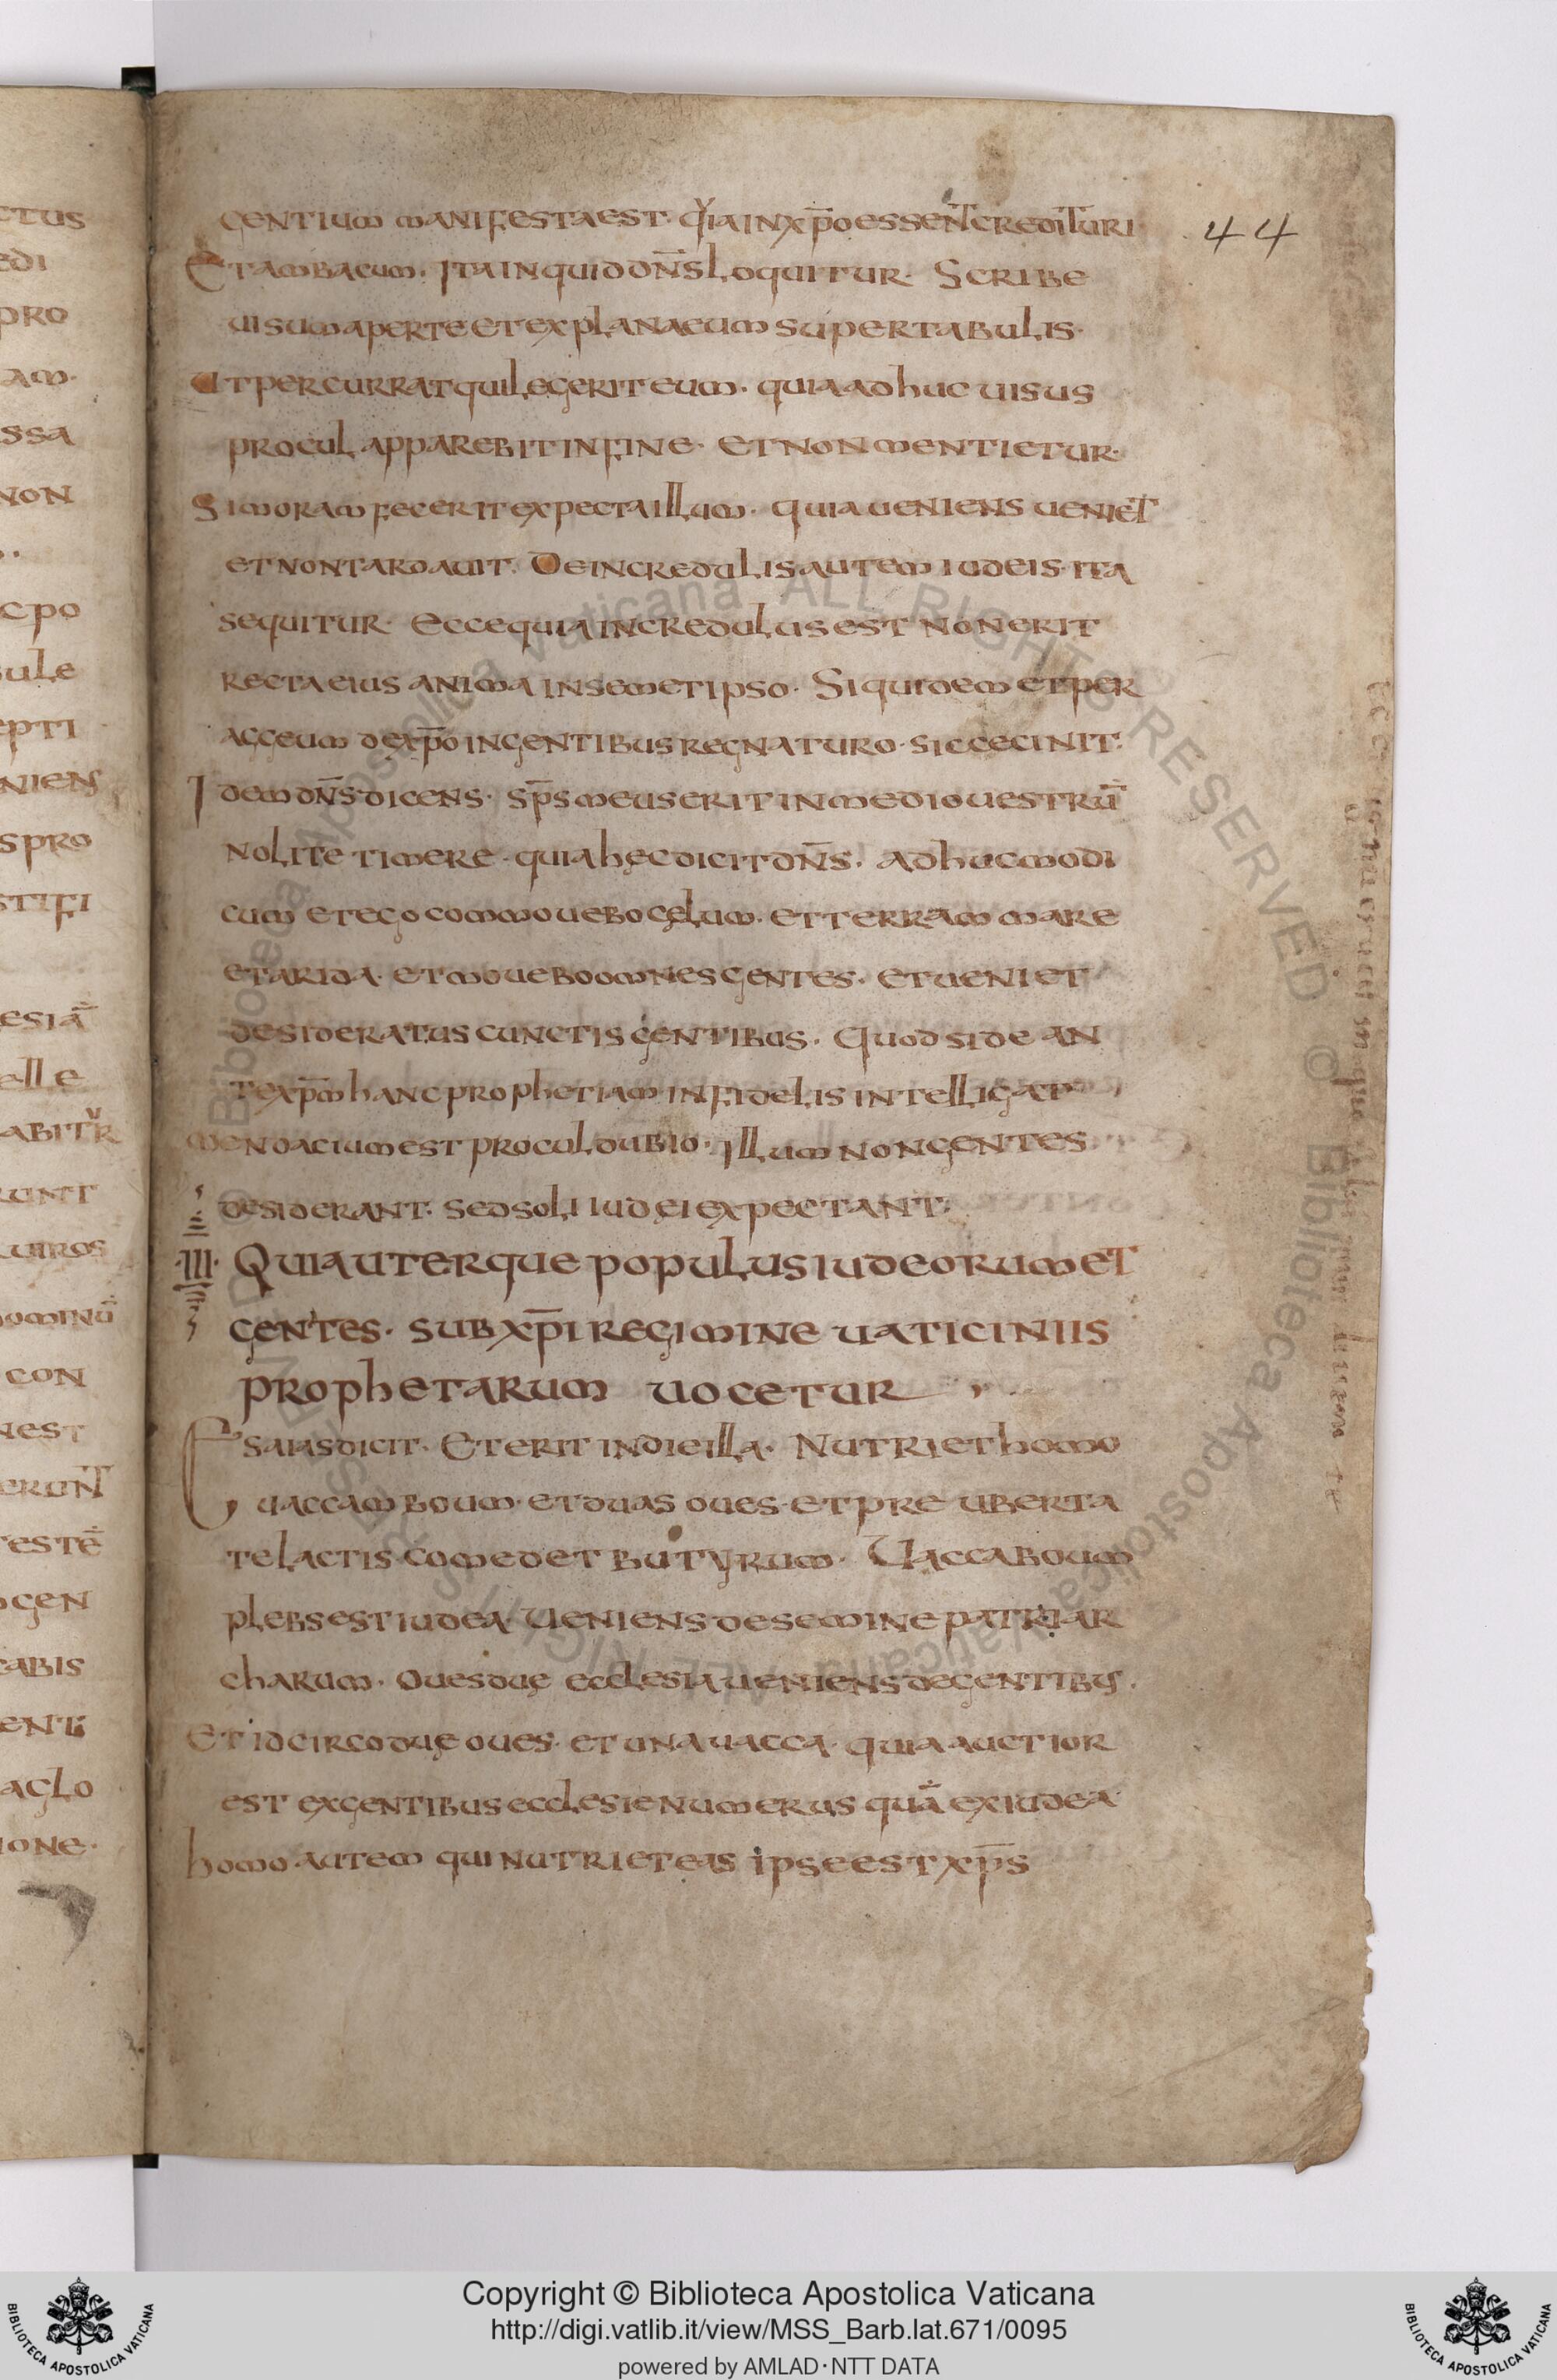 gentium manifesta est. qͮia in xp̅o essent credituri
Et ambacum. Ita inquid dn̅s loquitur. Scribe
uisum aperte et explana eum super tabulis.
Ut percurrat qui legerit eum. quia adhuc uisus
procul apparebit in fine. et non mentietur.
Si moram fecerit expecta illum. quia ueniens ueniet
et non tardauit. De incredulis autem iudeis. ita
sequitur. Ecce quia incredulus est non erit
recta eius anima in semetipso. Siquidem et per
aggeum de xp̅o in gentibus regnaturo. sic cecinit.
Idem dn̅s dicens. sp̅s meus erit in medio uestrū
nolite timere. quia hęc dicit dn̅s. adhuc modi
cum et ego commouebo cęlum. et terram mare
et arida. et mouebo omnes gentes. et ueniet
desideratus cunctis gentibus. Quod si de an
texp̅m hanc prophetiam infidelis intelligat
mendacium est procul dubio. Illum non gentes
desiderant. sed soli iudęi expectant.
.III. Quia uterque populus iudeorum et
gentes. sub xp̅i regimine uaticiniis
prophetarum uocetur
Esaias dicit. Et erit in die illa. Nutriet homo
uaccam boum. et duas oues. et pre uberta
te lactis comedet butyrum. Uacca boum
plebs est iudea. Ueniens de semine patriar
charum. Oues duę ecclesia ueniens de gentibus.
Et idcirco duę oues. et una uacca. quia auctior
est ex gentibus ecclesie numerus quā ex iudea.
homo autem qui nutriet eas ipse est xp̅s
44
ctus
edi
pro
am.
ssa
non
cpo
ule
epti
niens
s pro
stifi
esiā
elle
abitͮr
unt
uiros
ominū
con
nest
erunt
testē
ogen
cabis
ent
aglo
ione.
Biblioteca Apostolica Vaticana ALL RIGHTS RESERVED © Biblioteca Apostolica Vaticana ALL RIGHTS RESERVED
BIBLIOTECA APOSTOLICA VATICANA
Copyright © Biblioteca Apostolica Vaticana
http://digi.vatlib.it/view/MSS_Barb.lat.671/0095
powered by AMLAD·NTT DATA
BIBLIOTECA APOSTOLICA VATICANA